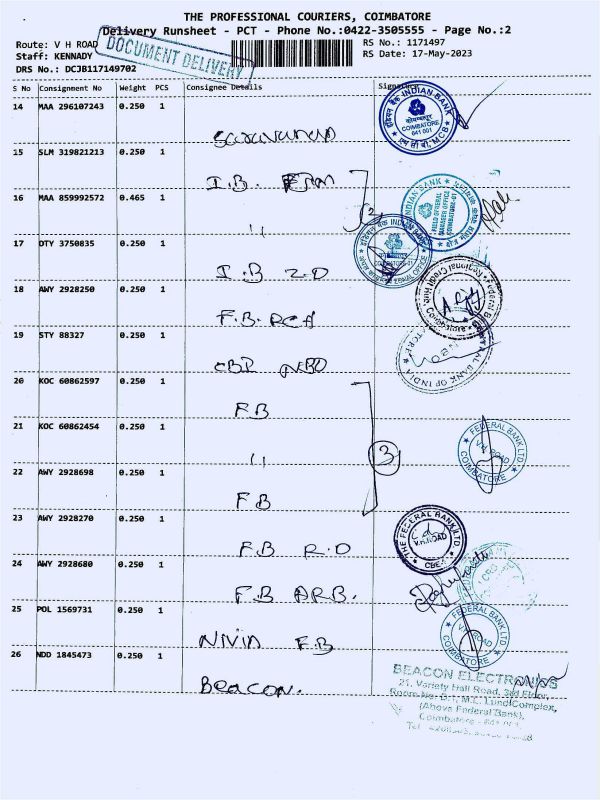 THE PROFESSIONAL COURIERS, COIMBATORE
Delivery Runsheet - PCT - Phone No.:0422-3505555 - Page No.:2
Route: V H ROAD
DOCUMENT DELIVERY
RS No.: 1171497
Staff: KENNADY
RS Date: 17-May-2023
DRS No.: DCJB117149702
S No Consignment No Weight PCS Consignee Details Signature
14 MAA 296107243 0.250 1
INDIAN BANK
COIMBATORE
641 001
15 SLM 319821213 0.250 1
I.B.
16 MAA 859992572 0.465 1
INDIAN BANK
FIELD GENERAL
MANAGER OFFICE
COIMBATORE-01
"
17 DTY 3750835 0.250 1
INDIAN BANK
ZONAL OFFICE
I.B Z.O
18 AWY 2928250 0.250 1
Federal Bank
Regional Credit Hub, Coimbatore
F.B. RCH
19 STY 88327 0.250 1
CENTRAL BANK OF INDIA
CBI
20 KOC 60862597 0.250 1
F.B
21 KOC 60862454 0.250 1
FEDERAL BANK LTD.
V.H. ROAD
COIMBATORE
"
3
22 AWY 2928698 0.250 1
F.B
23 AWY 2928270 0.250 1
THE FEDERAL BANK LTD.
V.H. ROAD
CBE
F.B R.O
24 AWY 2928680 0.250 1
F.B ARB.
25 POL 1569731 0.250 1
FEDERAL BANK LTD.
V.H. ROAD
COIMBATORE
NIVIN F.B
26 NDD 1845473 0.250 1
Beacon.
BEACON ELECTRONICS
21, Variety Hall Road, 3rd Floor,
Room No: M.L. Lund Complex,
(Above Federal Bank),
Coimbatore - 641 001.
Tel